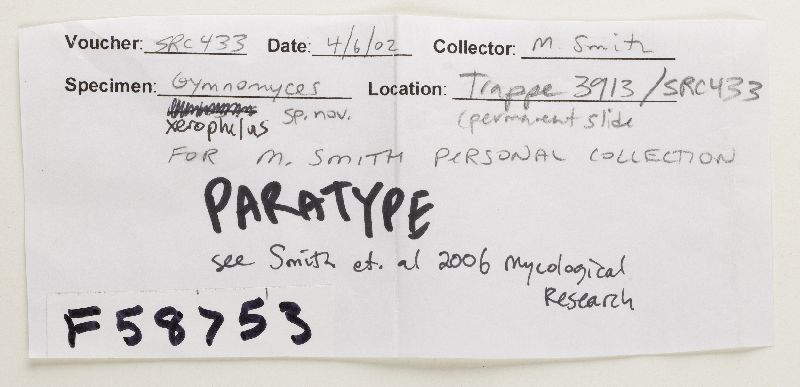 Voucher: SRC433 Date: 4/6/02 Collector: M. Smith
Specimen: Gymnomyces Location: Trappe 3913/SRC433
xerophilus sp. nov. (permanent slide
FOR M. SMITH PERSONAL COLLECTION
PARATYPE
see Smith et. al 2006 Mycological
Research
F58753